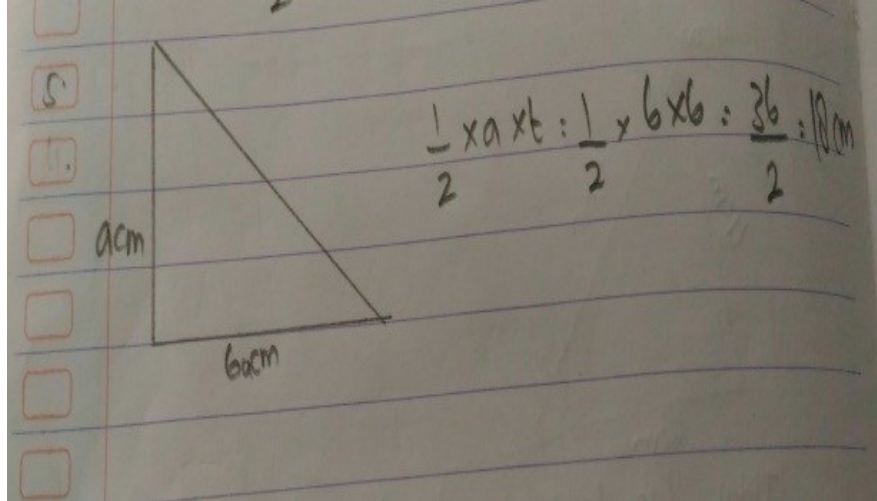 5.
1/2 × a × t : 1/2 × 6 × 6 : 36/2 : 18 cm
a cm
6a cm